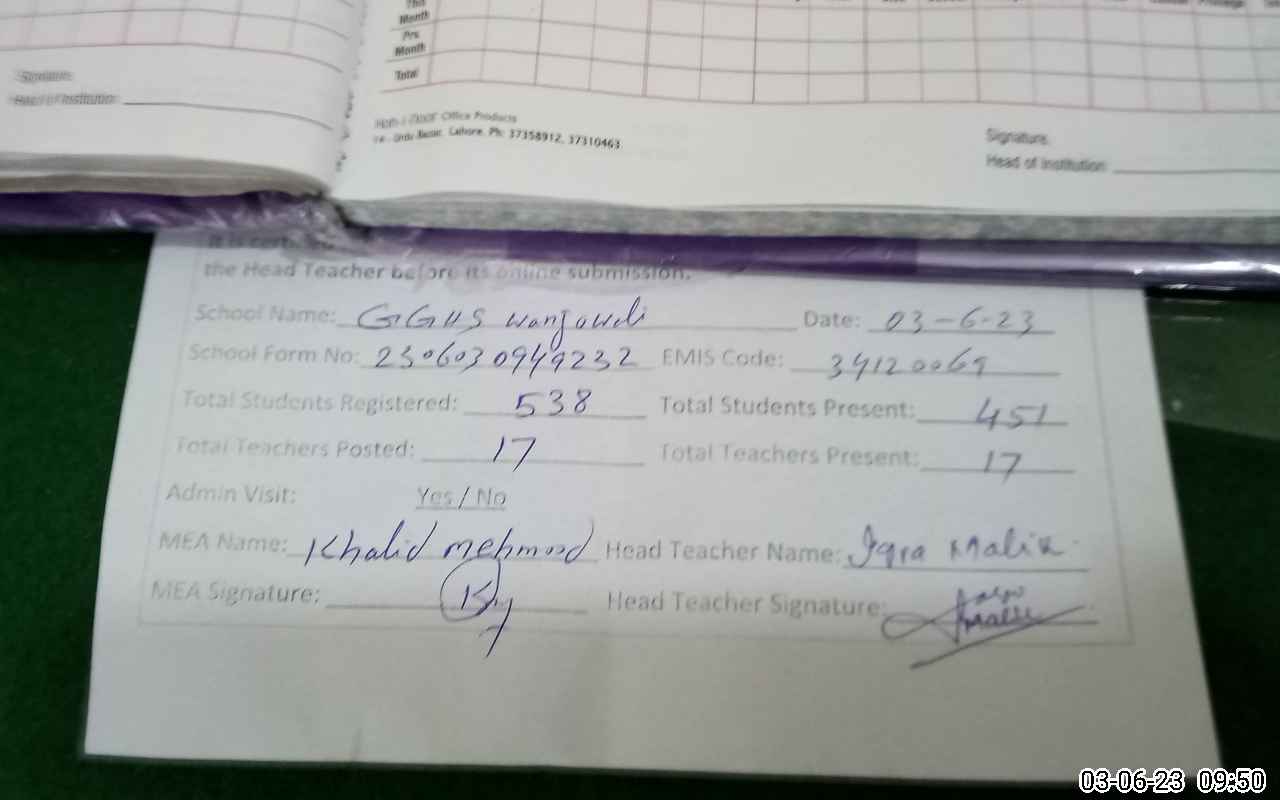 This
Month
Prv.
Month
Total
Signature
Head of Institution
Office Products
Urdu Bazar, Lahore. Ph: 37358912, 37310463
Signature.
Head of Institution
It is
the Head Teacher before its online submission.
School Name: GGHS Wanjowali Date: 03-6-23
School Form No: 2306030949232 EMIS Code: 34120069
Total Students Registered: 538 Total Students Present: 451
Total Teachers Posted: 17 Total Teachers Present: 17
Admin Visit: Yes / No
MEA Name: Khalid mehmood Head Teacher Name: Iqra Malik
MEA Signature: Head Teacher Signature:
03-06-23 09:50